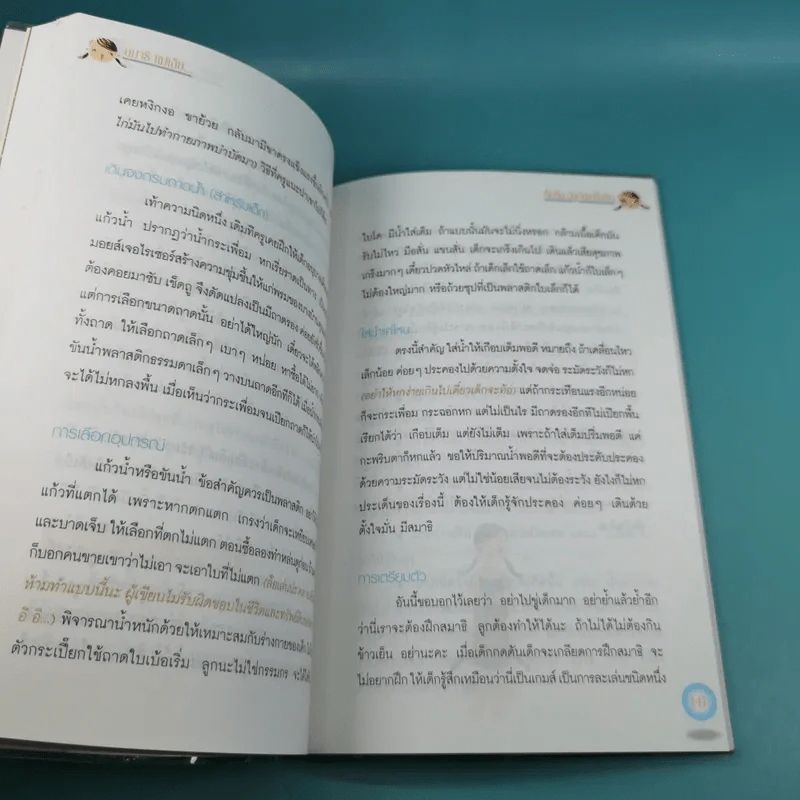 เคยหงิกงอ ขาย้วย กลับมามีขาตรงแข็งแรงขึ้น
ไก่มันไปทำกายภาพบำบัดมา) วิธีที่ครูแนะนำ
เดินจงกรมถาดน้ำ (สำหรับเด็ก)
เท้าความนิดหนึ่ง เดิมทีครูเคยฝึกให้เด็ก
แก้วน้ำ ปรากฏว่าน้ำกระเพื่อม หกเรี่ยราดเป็นทาง
มอยส์เจอไรเซอร์สร้างความชุ่มชื้นให้แก่พรมของบาง
ต้องคอยมาซับ เช็ดถู จึงดัดแปลงเป็นมีถาดรอง
แต่การเลือกขนาดถาดนั้น อย่าได้ใหญ่นัก เดี๋ยวจะได้
ทั้งถาด ให้เลือกถาดเล็กๆ เบาๆ หน่อย หาซื้อได้
ขันน้ำพลาสติกธรรมดาเล็กๆ วางบนถาดอีกทีก็ได้ เมื่อ
จะได้ไม่หกลงพื้น เมื่อเห็นว่ากระเพื่อมจนเปียกถาดก็ให้
การเลือกอุปกรณ์
แก้วน้ำหรือขันน้ำ ข้อสำคัญควรเป็นพลาสติก
แก้วที่แตกได้ เพราะหากตกแตก เกรงว่าเด็กจะเหยียบ
และบาดเจ็บ ให้เลือกที่ตกไม่แตก ตอนซื้อลองทำหล่น
ก็บอกคนขายเขาว่าไม่เอา จะเอาใบที่ไม่แตก
ห้ามทำแบบนี้นะ ผู้เขียนไม่รับผิดชอบในชีวิตและทรัพย์สิน
อิ อิ...) พิจารณาน้ำหนักด้วยให้เหมาะสมกับร่างกายของเด็ก
ตัวกระเปี๊ยกใช้ถาดใบเบ้อเริ่ม ลูกนะไม่ใช่กรรมกร
ใบโต มีน้ำใส่เต็ม ถ้าแบบนั้นมันจะไม่นิ่งหรอก กล้ามเนื้อเด็กมัน
รับไม่ไหว มือสั่น แขนสั่น เด็กจะเกร็งเกินไป เดินแล้วเสียสุขภาพ
เกร็งมากๆ เดี๋ยวปวดหัวไหล่ ถ้าเด็กเล็กใช้ถาดเล็ก แก้วน้ำก็ใบเล็กๆ
ไม่ต้องใหญ่มาก หรือถ้วยซุปที่เป็นพลาสติกใบเล็กก็ได้
ใส่น้ำแค่ไหน
ตรงนี้สำคัญ ใส่น้ำให้เกือบเต็มพอดี หมายถึง ถ้าเคลื่อนไหว
เล็กน้อย ค่อยๆ ประคองไปด้วยความตั้งใจ จดจ่อ ระมัดระวังก็ไม่หก
(อย่าให้หกง่ายเกินไปเดี๋ยวเด็กจะท้อ) แต่ถ้ากระเทือนแรงอีกหน่อย
ก็จะกระเพื่อม กระฉอกหก แต่ไม่เป็นไร มีถาดรองอีกทีไม่เปียกพื้น
เรียกได้ว่า เกือบเต็ม แต่ยังไม่เต็ม เพราะถ้าใส่เต็มปริ่มพอดี แค่
กะพริบตาก็หกแล้ว ขอให้ปริมาณน้ำพอดีที่จะต้องประคับประคอง
ด้วยความระมัดระวัง แต่ไม่ใช่น้อยเสียจนไม่ต้องระวัง ยังไงก็ไม่หก
ประเด็นของเรื่องนี้ ต้องให้เด็กรู้จักประคอง ค่อยๆ เดินด้วย
ตั้งใจมั่น มีสมาธิ
การเตรียมตัว
อันนี้ขอบอกไว้เลยว่า อย่าไปขู่เด็กมาก อย่าย้ำแล้วย้ำอีก
ว่านี่เราจะต้องฝึกสมาธิ ลูกต้องทำให้ได้นะ ถ้าไม่ได้ไม่ต้องกิน
ข้าวเย็น อย่านะคะ เมื่อเด็กกดดันเด็กจะเกลียดการฝึกสมาธิ จะ
ไม่อยากฝึก ให้เด็กรู้สึกเหมือนว่านี่เป็นเกมส์ เป็นการละเล่นชนิดหนึ่ง